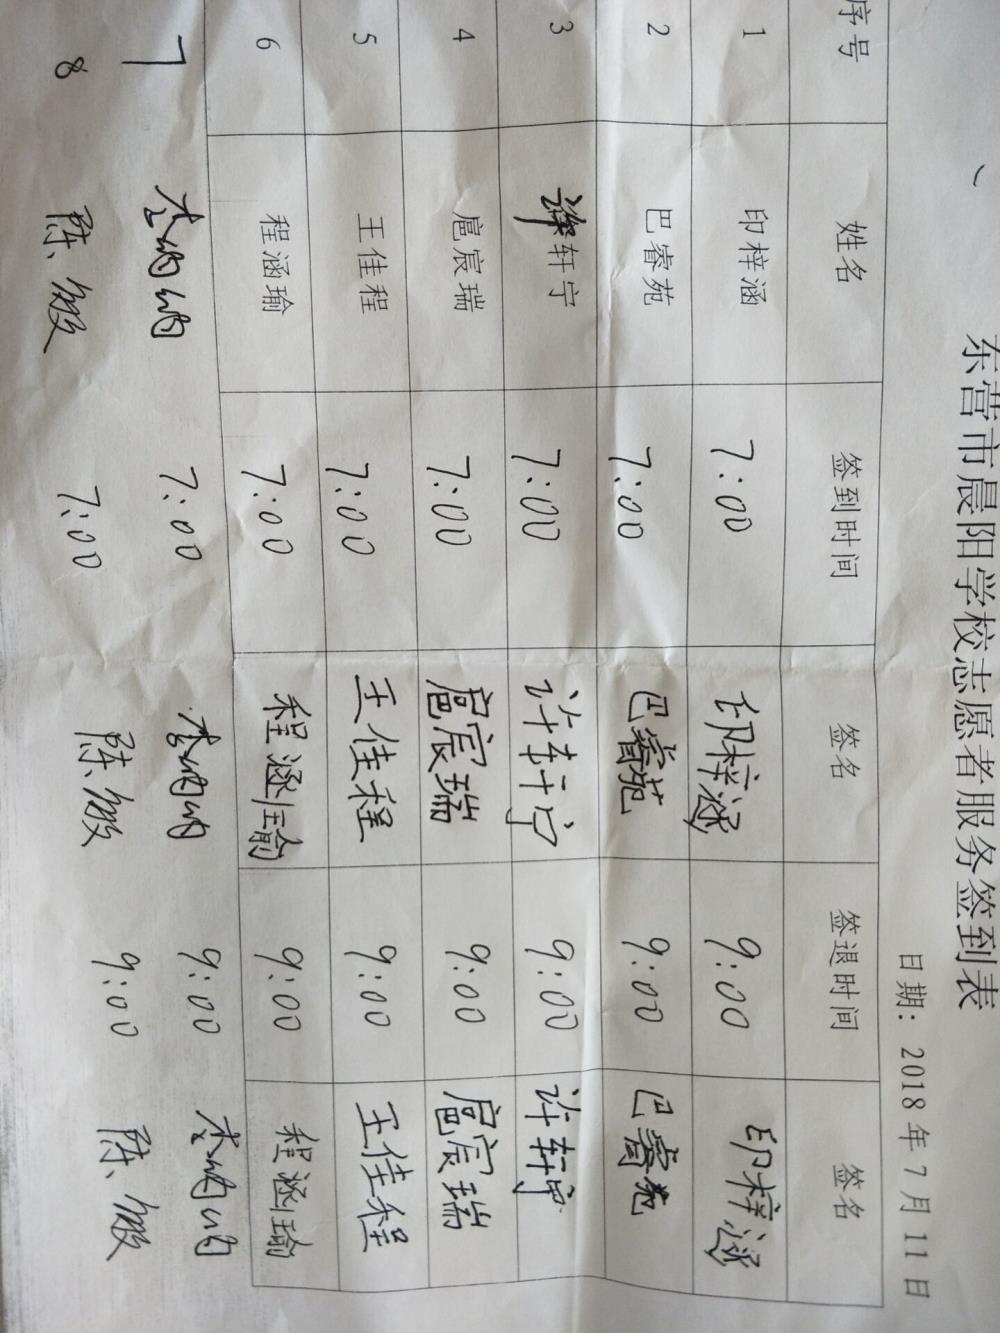 东营市晨阳学校志愿者服务签到表
日期：2018年7月11日
序号 姓名 签到时间 签名 签退时间 签名
1 印梓涵 7:00 印梓涵 9:00 印梓涵
2 巴睿苑 7:00 巴睿苑 9:00 巴睿苑
3 许轩宁 7:00 许轩宁 9:00 许轩宁
4 扈宸瑞 7:00 扈宸瑞 9:00 扈宸瑞
5 王佳程 7:00 王佳程 9:00 王佳程
6 程涵瑜 7:00 程涵瑜 9:00 程涵瑜
7 李 7:00 李 9:00 李
8 陈 7:00 陈 9:00 陈